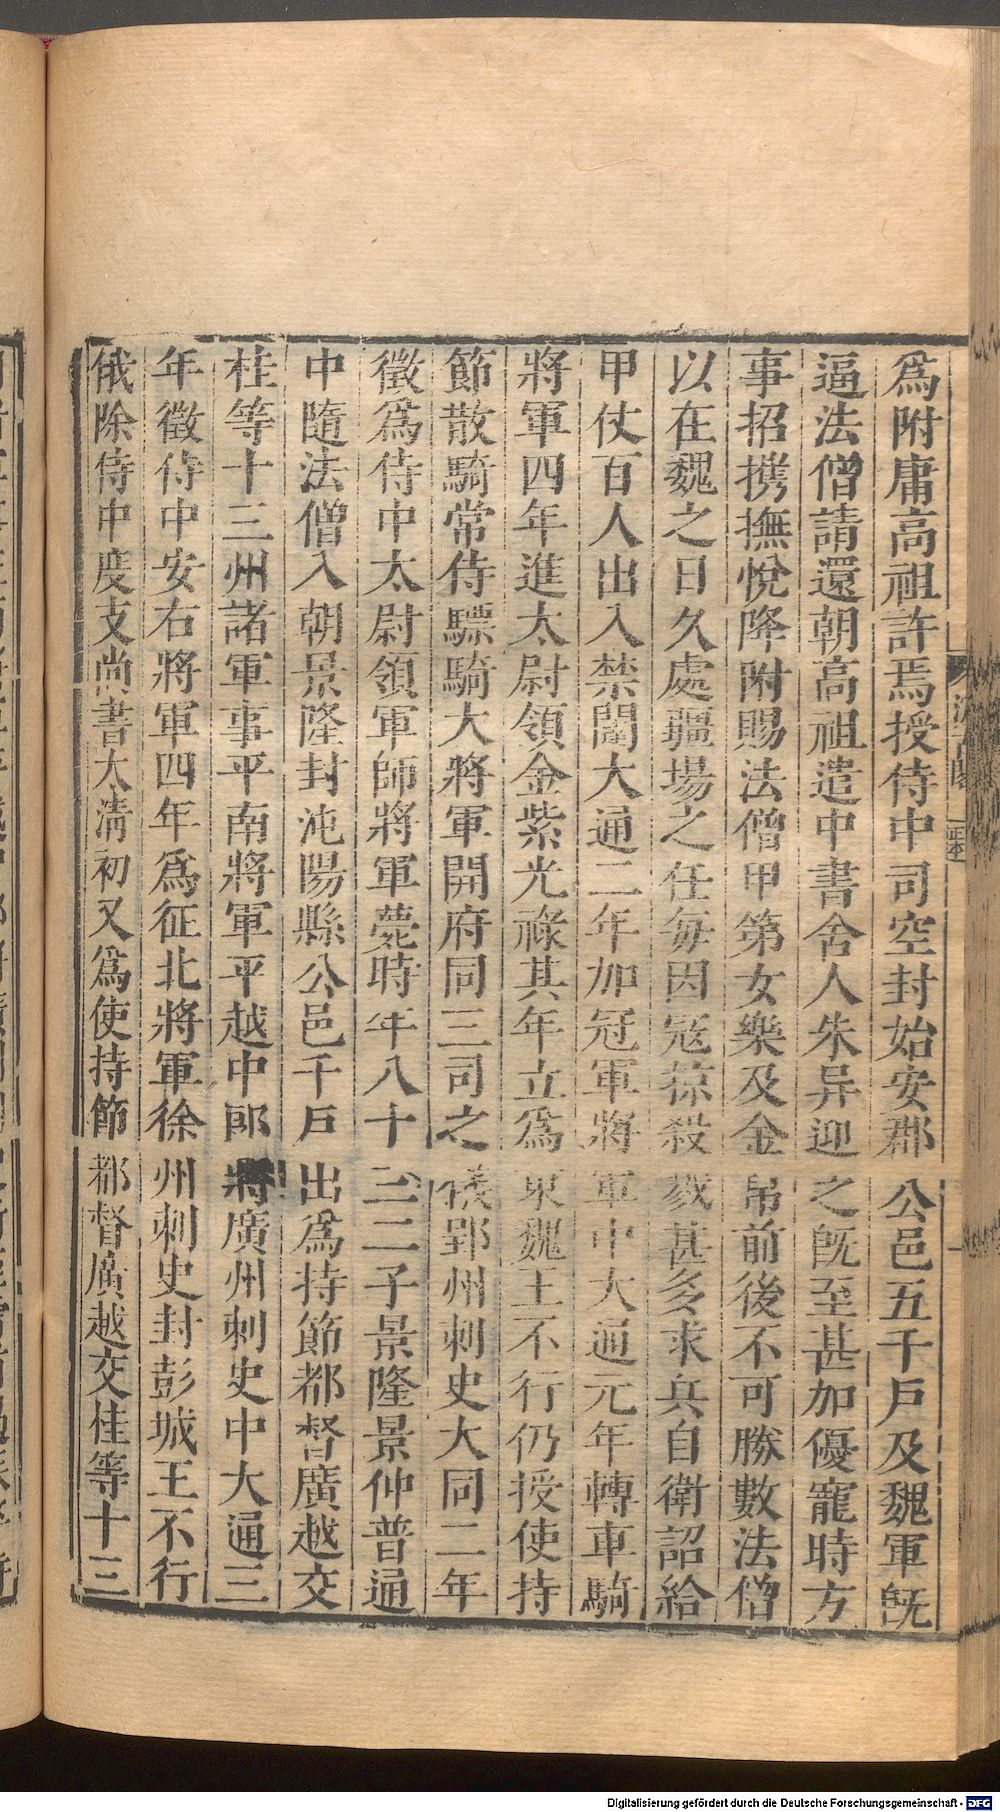 爲附庸高祖許焉授侍中司空封始安郡公邑五千戶及魏軍旣
逼法僧請還朝高祖遣中書舍人朱异迎之旣至甚加優寵時方
事招携撫悅降附賜法僧甲第女樂及金帛前後不可勝數法僧
以在魏之日久處疆場之任每因寇掠殺戮甚多求兵自衛詔給
甲仗百人出入禁闥大通二年加冠軍將軍中大通元年轉車騎
將軍四年進太尉領金紫光祿其年立爲東魏王不行仍授使持
節散騎常侍驃騎大將軍開府同三司之儀郢州刺史大同二年
徵爲侍中太尉領軍師將軍薨時年八十三二子景隆景仲普通
中隨法僧入朝景隆封沌陽縣公邑千戶出爲持節都督廣越交
桂等十三州諸軍事平南將軍平越中郎將廣州刺史中大通三
年徵侍中安右將軍四年爲征北將軍徐州刺史封彭城王不行
俄除侍中度支尚書太淸初又爲使持節都督廣越交桂等十三
Digitalisierung gefördert durch die Deutsche Forschungsgemeinschaft - DFG